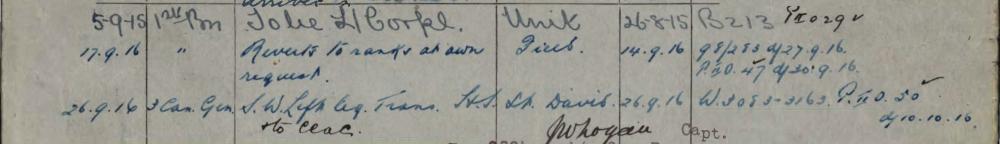 5-9-15 1st Bn To be L/Corpl. Unit 26-8-15 B213
17.9.16 " Reverts to ranks at own Field. 14.9.16 d/27.9.16.
request. P.II O. 47 d/30.9.16.
26.9.16 3 Can. Gen. S. W. Left leg. Trans. H.S. St. David. 26.9.16 W.3083-3163. P.II O. 50
to CCAC. d/10.10.16.
Capt.